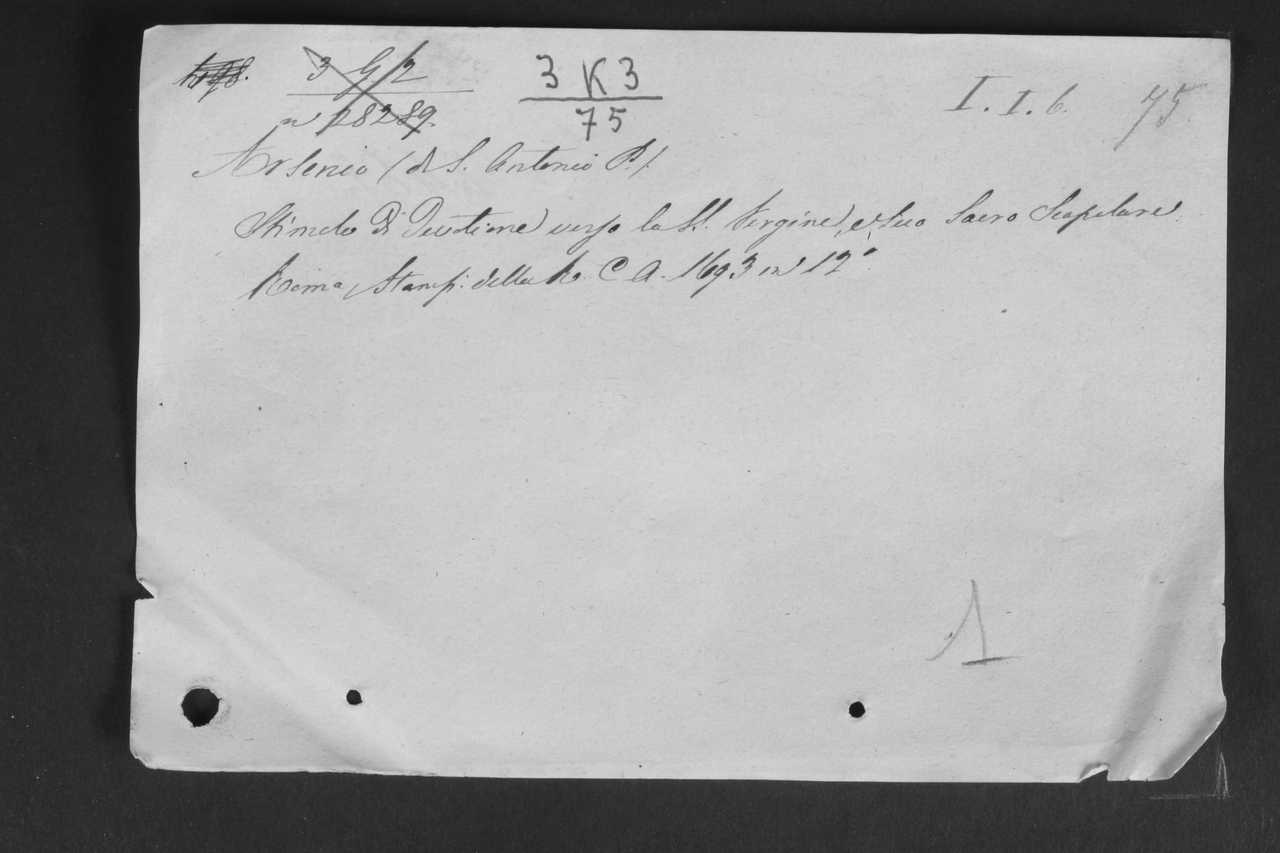 3 G/2
n 28289.
3 K 3
75
I. I. 6. 75
Arsenio (di S. Antonio P.).
Stimolo di Divotione verso la SS. Vergine, e suo Sacro Scapolare.
Roma, Stamp: della R. C. A. 1693 in 12°.
1